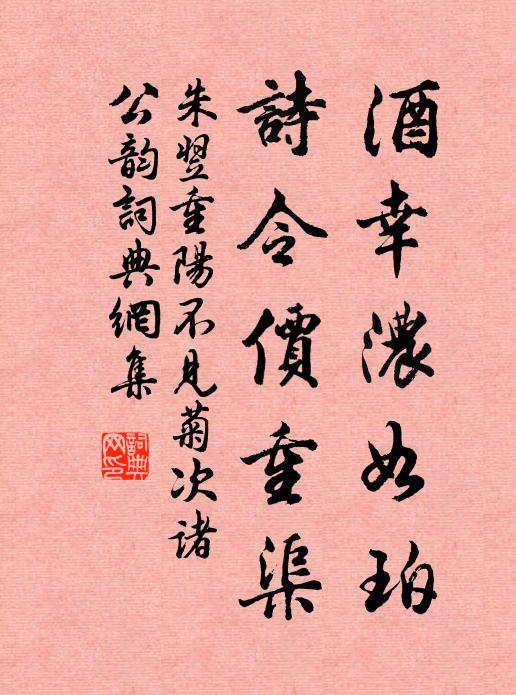 酒幸濃如珀
詩令價重渠
朱翌重陽不見菊次諸
公韵詞典網集
詞典网印